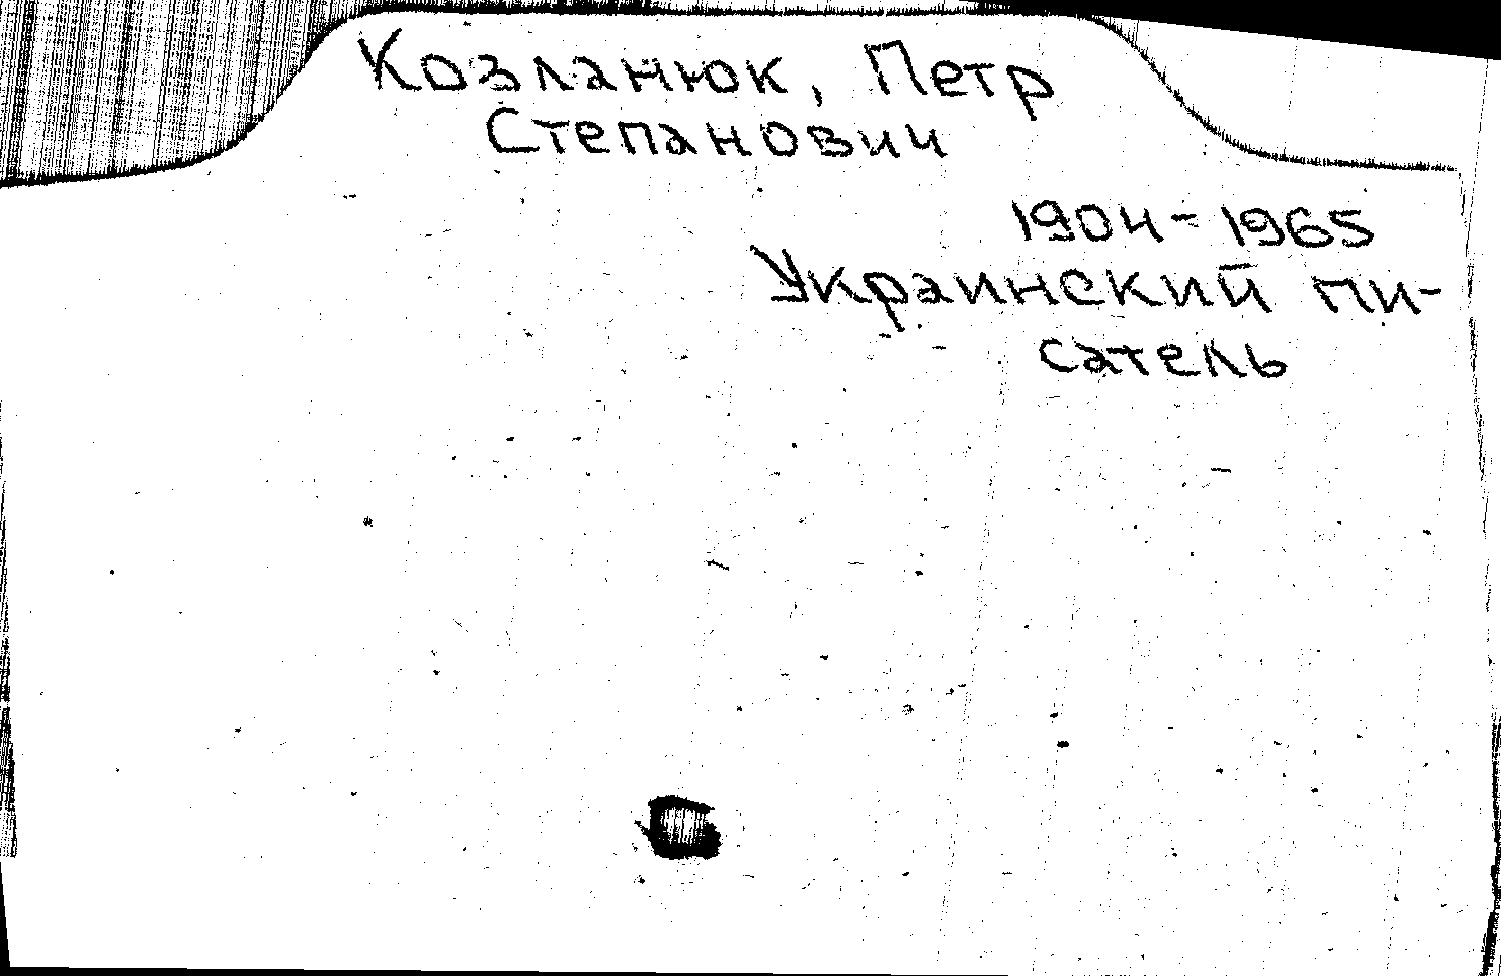 Козланюк, Петр
Степанович
1904-1965
Украинский пи-
сатель